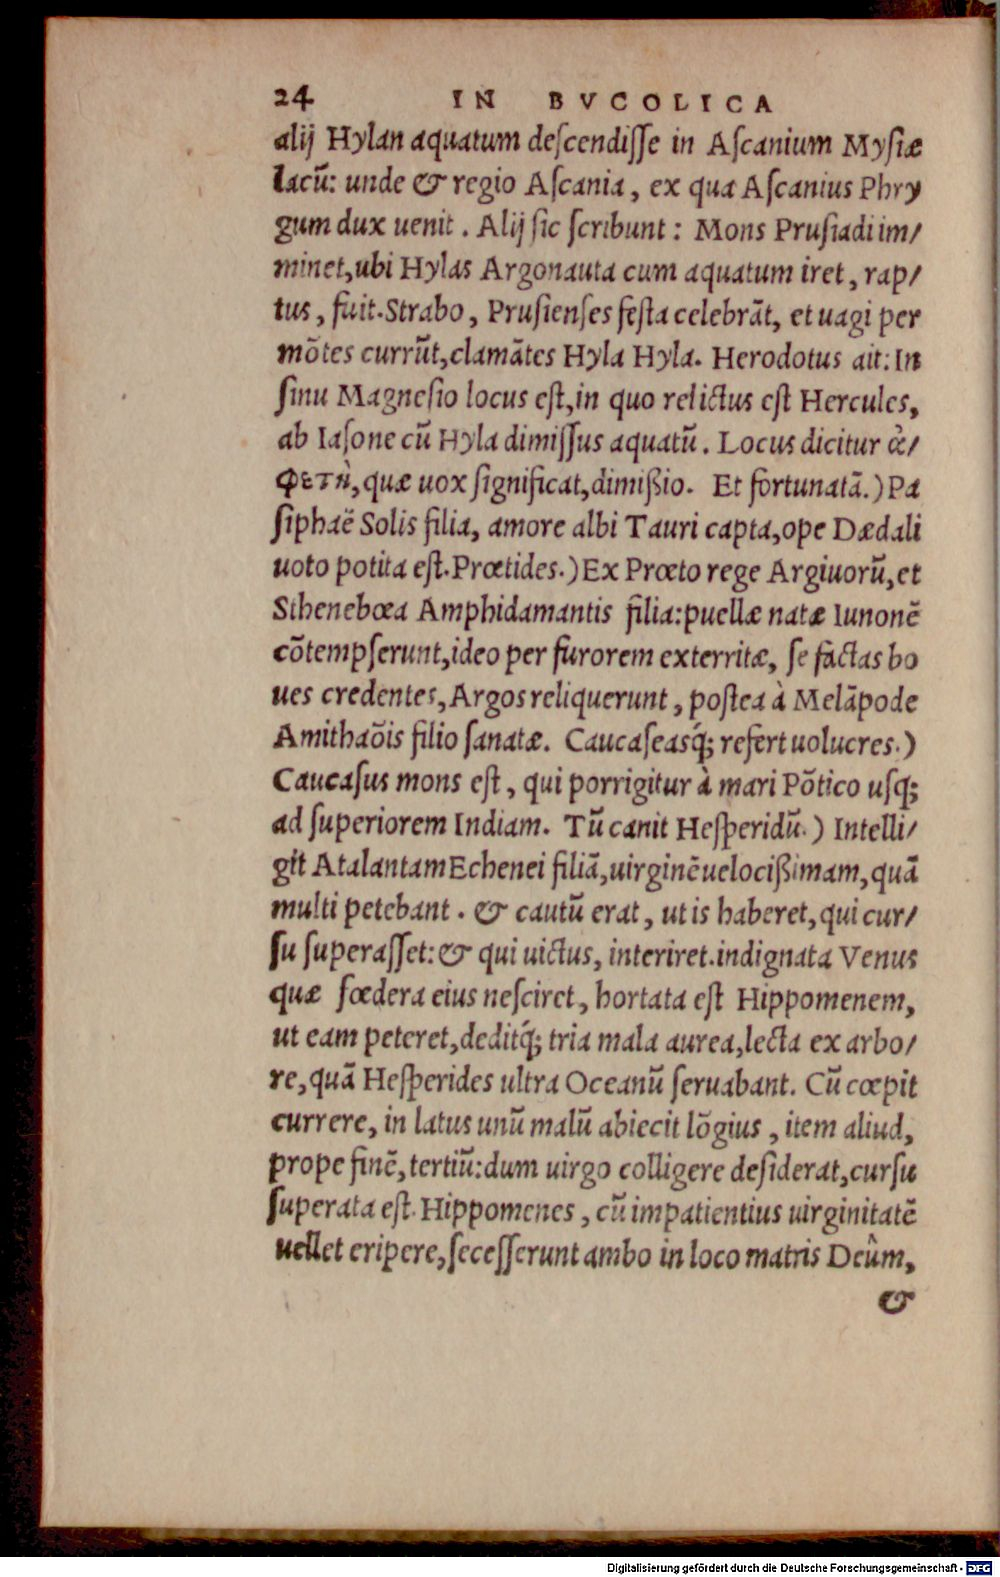 24 IN BVCOLICA
alij Hylan aquatum deſcendiſſe in Aſcanium Myſiæ
lacũ: unde & regio Aſcania, ex qua Aſcanius Phry
gum dux uenit. Alij ſic ſcribunt: Mons Pruſiadi im/
minet, ubi Hylas Argonauta cum aquatum iret, rap/
tus, fuit. Strabo, Pruſienſes feſta celebrãt, et uagi per
mõtes currũt, clamãtes Hyla Hyla. Herodotus ait: In
ſinu Magneſio locus eſt, in quo relictus eſt Hercules,
ab Iaſone cũ Hyla dimiſſus aquatũ. Locus dicitur ἀ/
φετὴ, quæ uox ſignificat, dimißio. Et fortunatã.) Pa
ſiphaẽ Solis filia, amore albi Tauri capta, ope Dædali
uoto potita eſt. Prœtides.) Ex Prœto rege Argiuorũ, et
Sthenebœa Amphidamantis filia: puellæ natæ Iunonẽ
cõtempſerunt, ideo per furorem exterritæ, ſe factas bo
ues credentes, Argos reliquerunt, poſtea à Melãpode
Amithaõis filio ſanatæ. Caucaſeasq́; refert uolucres.)
Caucaſus mons eſt, qui porrigitur à mari Põtico uſq;
ad ſuperiorem Indiam. Tũ canit Heſperidũ.) Intelli/
git Atalantam Echenei filiã, uirginẽ uelocißimam, quã
multi petebant. & cautũ erat, ut is haberet, qui cur/
ſu ſuperaſſet: & qui uictus, interiret. indignata Venus
quæ fœdera eius neſciret, hortata eſt Hippomenem,
ut eam peteret, deditq́; tria mala aurea, lecta ex arbo/
re, quã Heſperides ultra Oceanũ ſeruabant. Cũ cœpit
currere, in latus unũ malũ abiecit lõgius, item aliud,
prope finẽ, tertiũ: dum uirgo colligere deſiderat, curſu
ſuperata eſt. Hippomenes, cũ impatientius uirginitatẽ
uellet eripere, ſeceſſerunt ambo in loco matris Deûm,
&
Digitalisierung gefördert durch die Deutsche Forschungsgemeinschaft - DFG